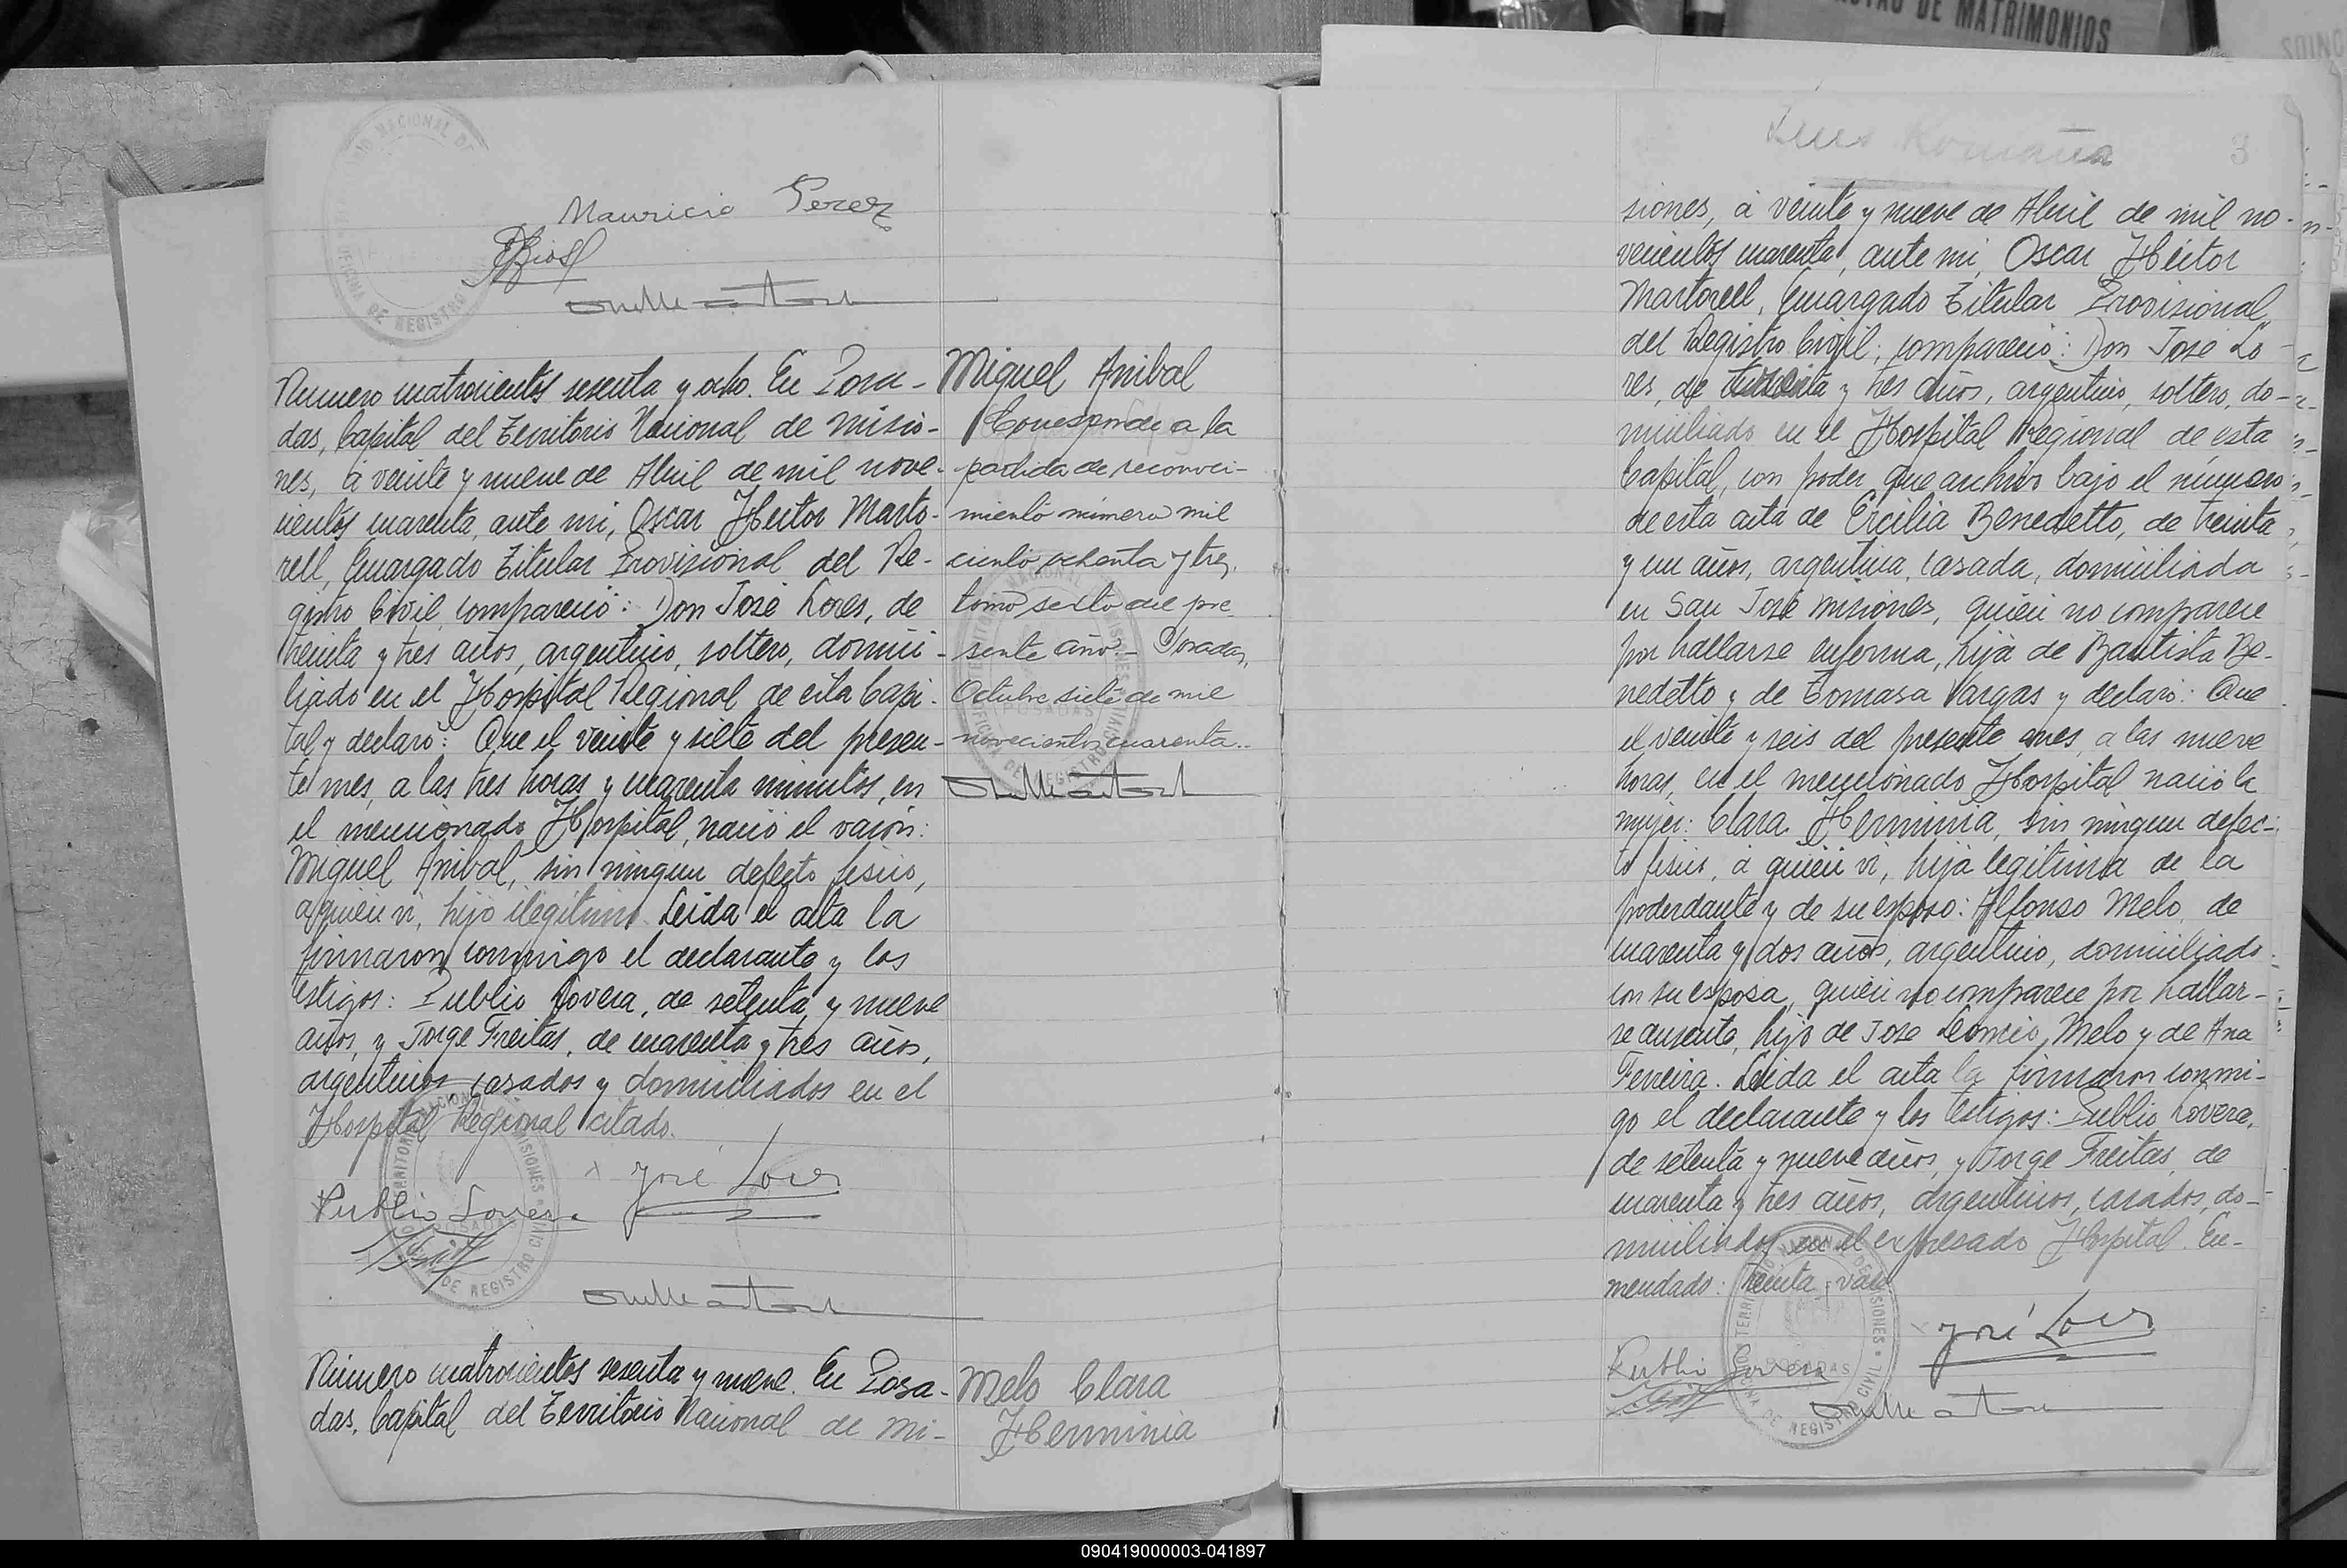 DE MATRIMONIOS
Mauricio Perez
Numero cuatrocientos sesenta y ocho. En Posa-
das, Capital del Territorio Nacional de Misio-
nes, á veinte y nueve de Abril de mil nove-
cientos cuarenta, ante mi, Oscar Hector Marto-
rell, Encargado Titular Provisional del Re-
gistro Civil, compareció: Don José Lores, de
treinta y tres años, argentino, soltero, domici-
liado en el Hospital Regional de esta Capi-
tal y declaró: Que el veinte y siete del presen-
te mes, a las tres horas y cuarenta minutos, en
el mencionado Hospital, nació el varón:
Miguel Anibal, sin ningun defecto fisico,
a quien vi, hijo ilegitimo. Leida el acta la
firmaron conmigo el declarante y los
testigos: Publio Lovera, de setenta y nueve
años, y Jorge Freitas, de cuarenta y tres años,
argentinos casados y domiciliados en el
Hospital Regional citado.
José Lores
Publio Lovera
Miguel Anibal
Corresponde a la
partida de reconoci-
miento número mil
ciento ochenta y tres,
tomo sexto del pre
sente año.- Posadas,
Octubre siete de mil
novecientos cuarenta..
Número cuatrocientos sesenta y nueve. En Posa-
das, Capital del Territorio Nacional de Mi-
Melo Clara
Herminia
3
siones, á veinte y nueve de Abril de mil no-
vecientos cuarenta, ante mi, Oscar Héctor
Martorell, Encargado Titular Provisional
del Registro Civil; compareció: Don José Lo-
res, de treinta y tres años, argentino, soltero, do-
miciliado en el Hospital Regional de esta
Capital, con poder que archivo bajo el número
de esta acta de Ercilia Benedetto, de treinta
y un años, argentina, casada, domiciliada
en San José Misiones, quién no comparece
por hallarse enferma, hija de Bautista Be-
nedetto y de Tomasa Vargas y declaró: Que
el veinte y seis del presente mes, a las nueve
horas, en el mencionado Hospital nació la
mujer: Clara Herminia, sin ningun defec-
to fisico, á quién vi, hija legitima de la
poderdante y de su esposo: Alfonso Melo, de
cuarenta y dos años, argentino, domiciliado
con su esposa, quién no comparece por hallar-
se ausente, hijo de José Leoncio Melo y de Ana
Ferreira. Leida el acta la firmaron conmi-
go el declarante y los testigos: Publio Lovera,
de setenta y nueve años, y Jorge Freitas, de
cuarenta y tres años, argentinos, casados, do-
miciliados en el expresado Hospital. En-
mendado: treinta, vale
José Lores
Publio Lovera
090419000003-041897